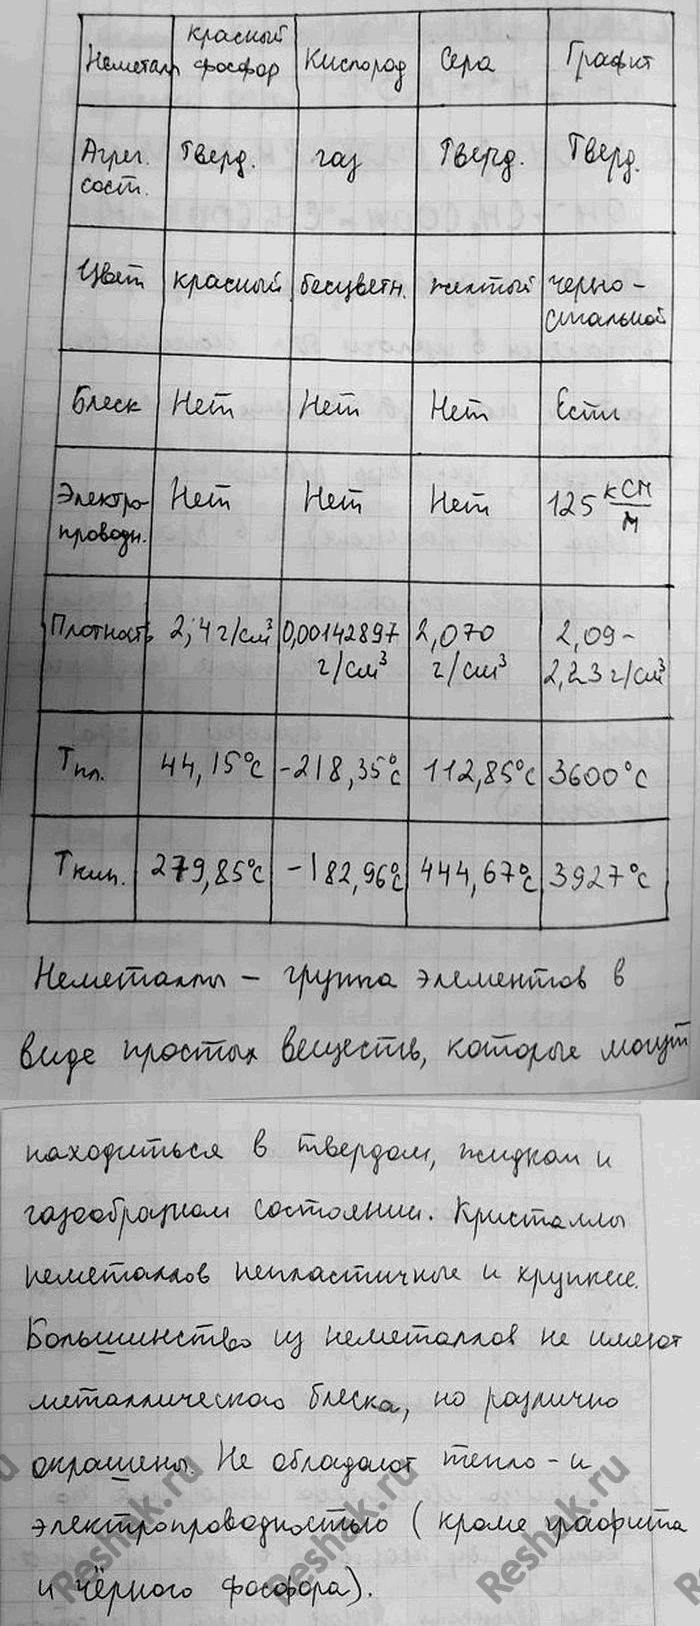 Неметалл красный фосфор Кислород Сера Графит
Агрег. сост. Тверд. газ Тверд. Тверд.
Цвет красный бесцветн. желтый черно-стальной
Блеск Нет Нет Нет Есть
Электро-проводн. Нет Нет Нет 125 кСм/м
Плотность 2,4 г/см³ 0,00142897 г/см³ 2,070 г/см³ 2,09-2,23 г/см³
Тпл. 44,15°C -218,35°C 112,85°C 3600°C
Ткип. 279,85°C -182,96°C 444,67°C 3927°C
Неметаллы – группа элементов в
виде простых веществ, которые могут
находиться в твердом, жидком и
газообразном состоянии. Кристаллы
неметаллов непластичные и хрупкие.
Большинство из неметаллов не имеют
металлического блеска, но различно
окрашены. Не обладают тепло- и
электропроводностью (кроме графита
и чёрного фосфора).
Reshak.ru
Reshak.ru
Reshak.ru